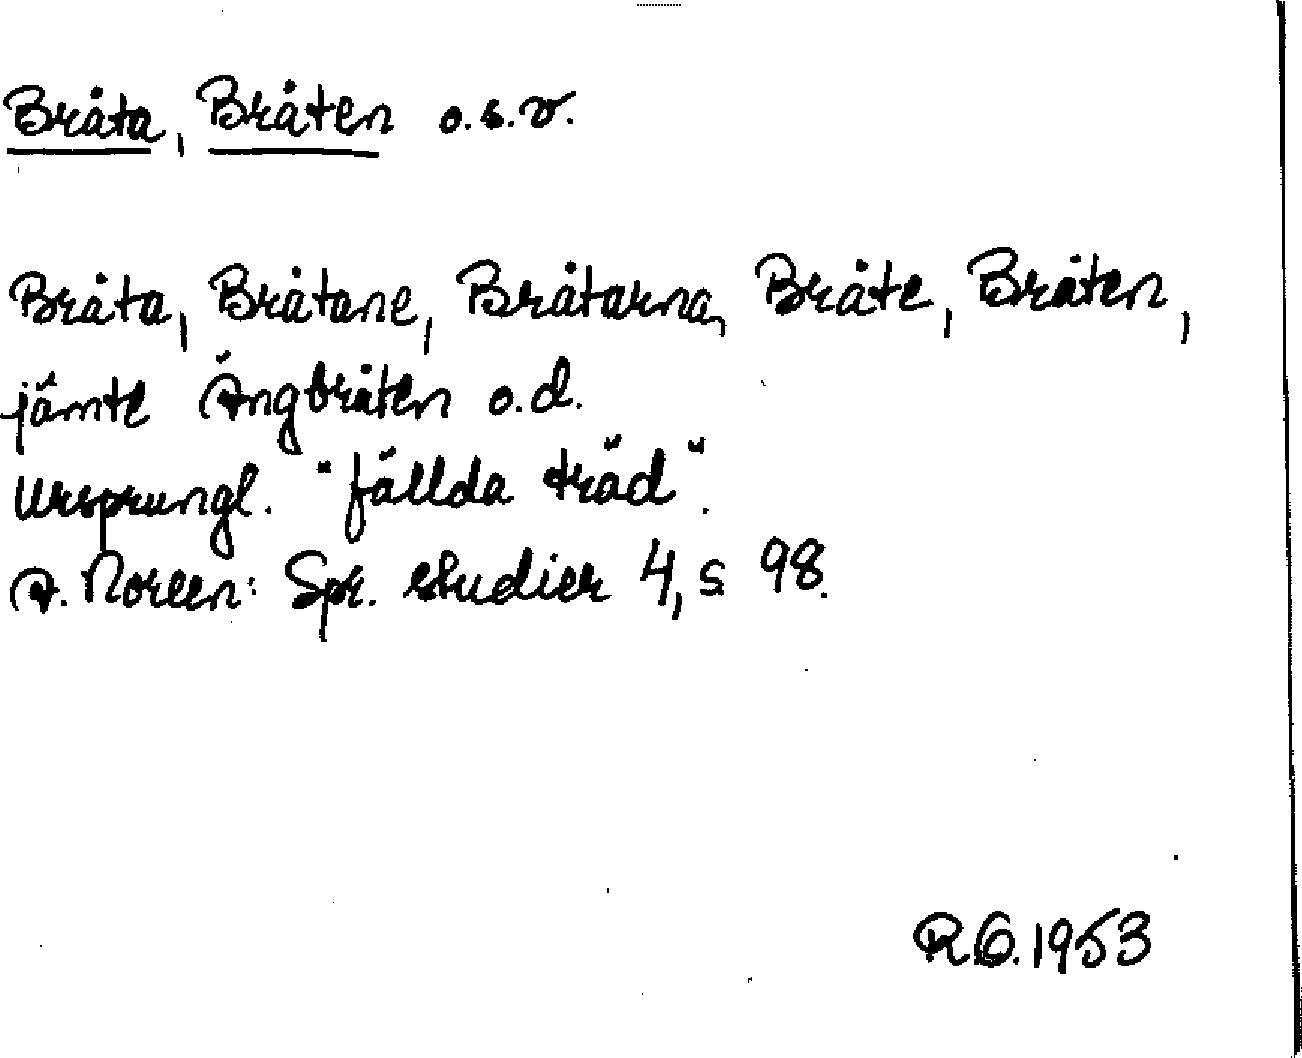 Bråta, Bråten o.s.v.
Bråta, Bråtane, Bråtarna, Bråte, Bråten,
jämte Ängbråten o.d.
Ursprungl. "fällda träd".
A. Noreen: Spr. studier 4, s 98.
R.O. 1953